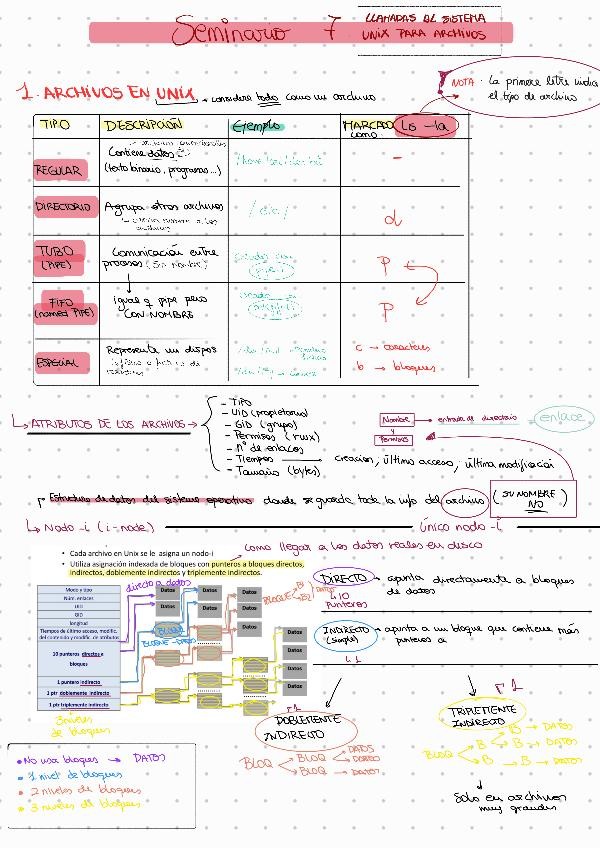 Seminario 7
LLAMADAS AL SISTEMA
UNIX PARA ARCHIVOS
1. ARCHIVOS EN UNIX
→ considera todo como un archivo
NOTA: La primera letra indica
el tipo de archivo
TIPO DESCRIPCIÓN Ejemplo MARCADO COMO: ls -la
REGULAR
Contiene datos
(texto binario, programas...)
-
DIRECTORIO
Agrupa otros archivos
/etc/
d
TUBO
(PIPE)
Comunicación entre
procesos (sin nombre)
P
FIFO
(named PIPE)
igual q pipe pero
CON NOMBRE
P
ESPECIAL
Representa un dispos
c → caracteres
b → bloques
↳ ATRIBUTOS DE LOS ARCHIVOS →
- TIPO
- UID (propietario)
- GID (grupo)
- Permisos (rwx)
- Nº de enlaces
- Tiempos → creación, último acceso, última modificación
- Tamaño (bytes)
Nombre → entrada de directorio → enlace
y
Permisos
Estructura de datos del sistema operativo donde se guarda toda la info del archivo (SU NOMBRE NO)
↳ Nodo-i (i-node) único nodo-i
• Cada archivo en Unix se le asigna un nodo-i
• Utiliza asignación indexada de bloques con punteros a bloques directos,
indirectos, doblemente indirectos y triplemente indirectos.
como llegar a los datos reales en disco
directo a datos
Modo y tipo
Núm. enlaces
UID
GID
longitud
Tiempos de último acceso, modific.
del contenido y modific. de atributos
10 punteros directos a
bloques
1 puntero indirecto
1 ptr doblemente indirecto
1 ptr triplemente indirecto
Datos Datos Datos
Datos Datos Datos
Datos Datos
Datos
Datos
Datos
BLOQUE
DATOS
3 niveles
de bloques
DIRECTO → apunta directamente a bloques
de datos
↳ 10
punteros
INDIRECTO → apunta a un bloque que contiene más
(simple) punteros a
↳ 1
1
DOBLEMENTE
INDIRECTO
BLOQ → BLOQ → DATOS
DATOS
BLOQ → DATOS
1
TRIPLEMENTE
INDIRECTO
BLOQ → B → B → DATOS
B → DATOS
B → B → DATOS
Sólo en archivos
muy grandes
• No usa bloques → DATOS
• 1 nivel de bloques
• 2 niveles de bloques
• 3 niveles de bloques